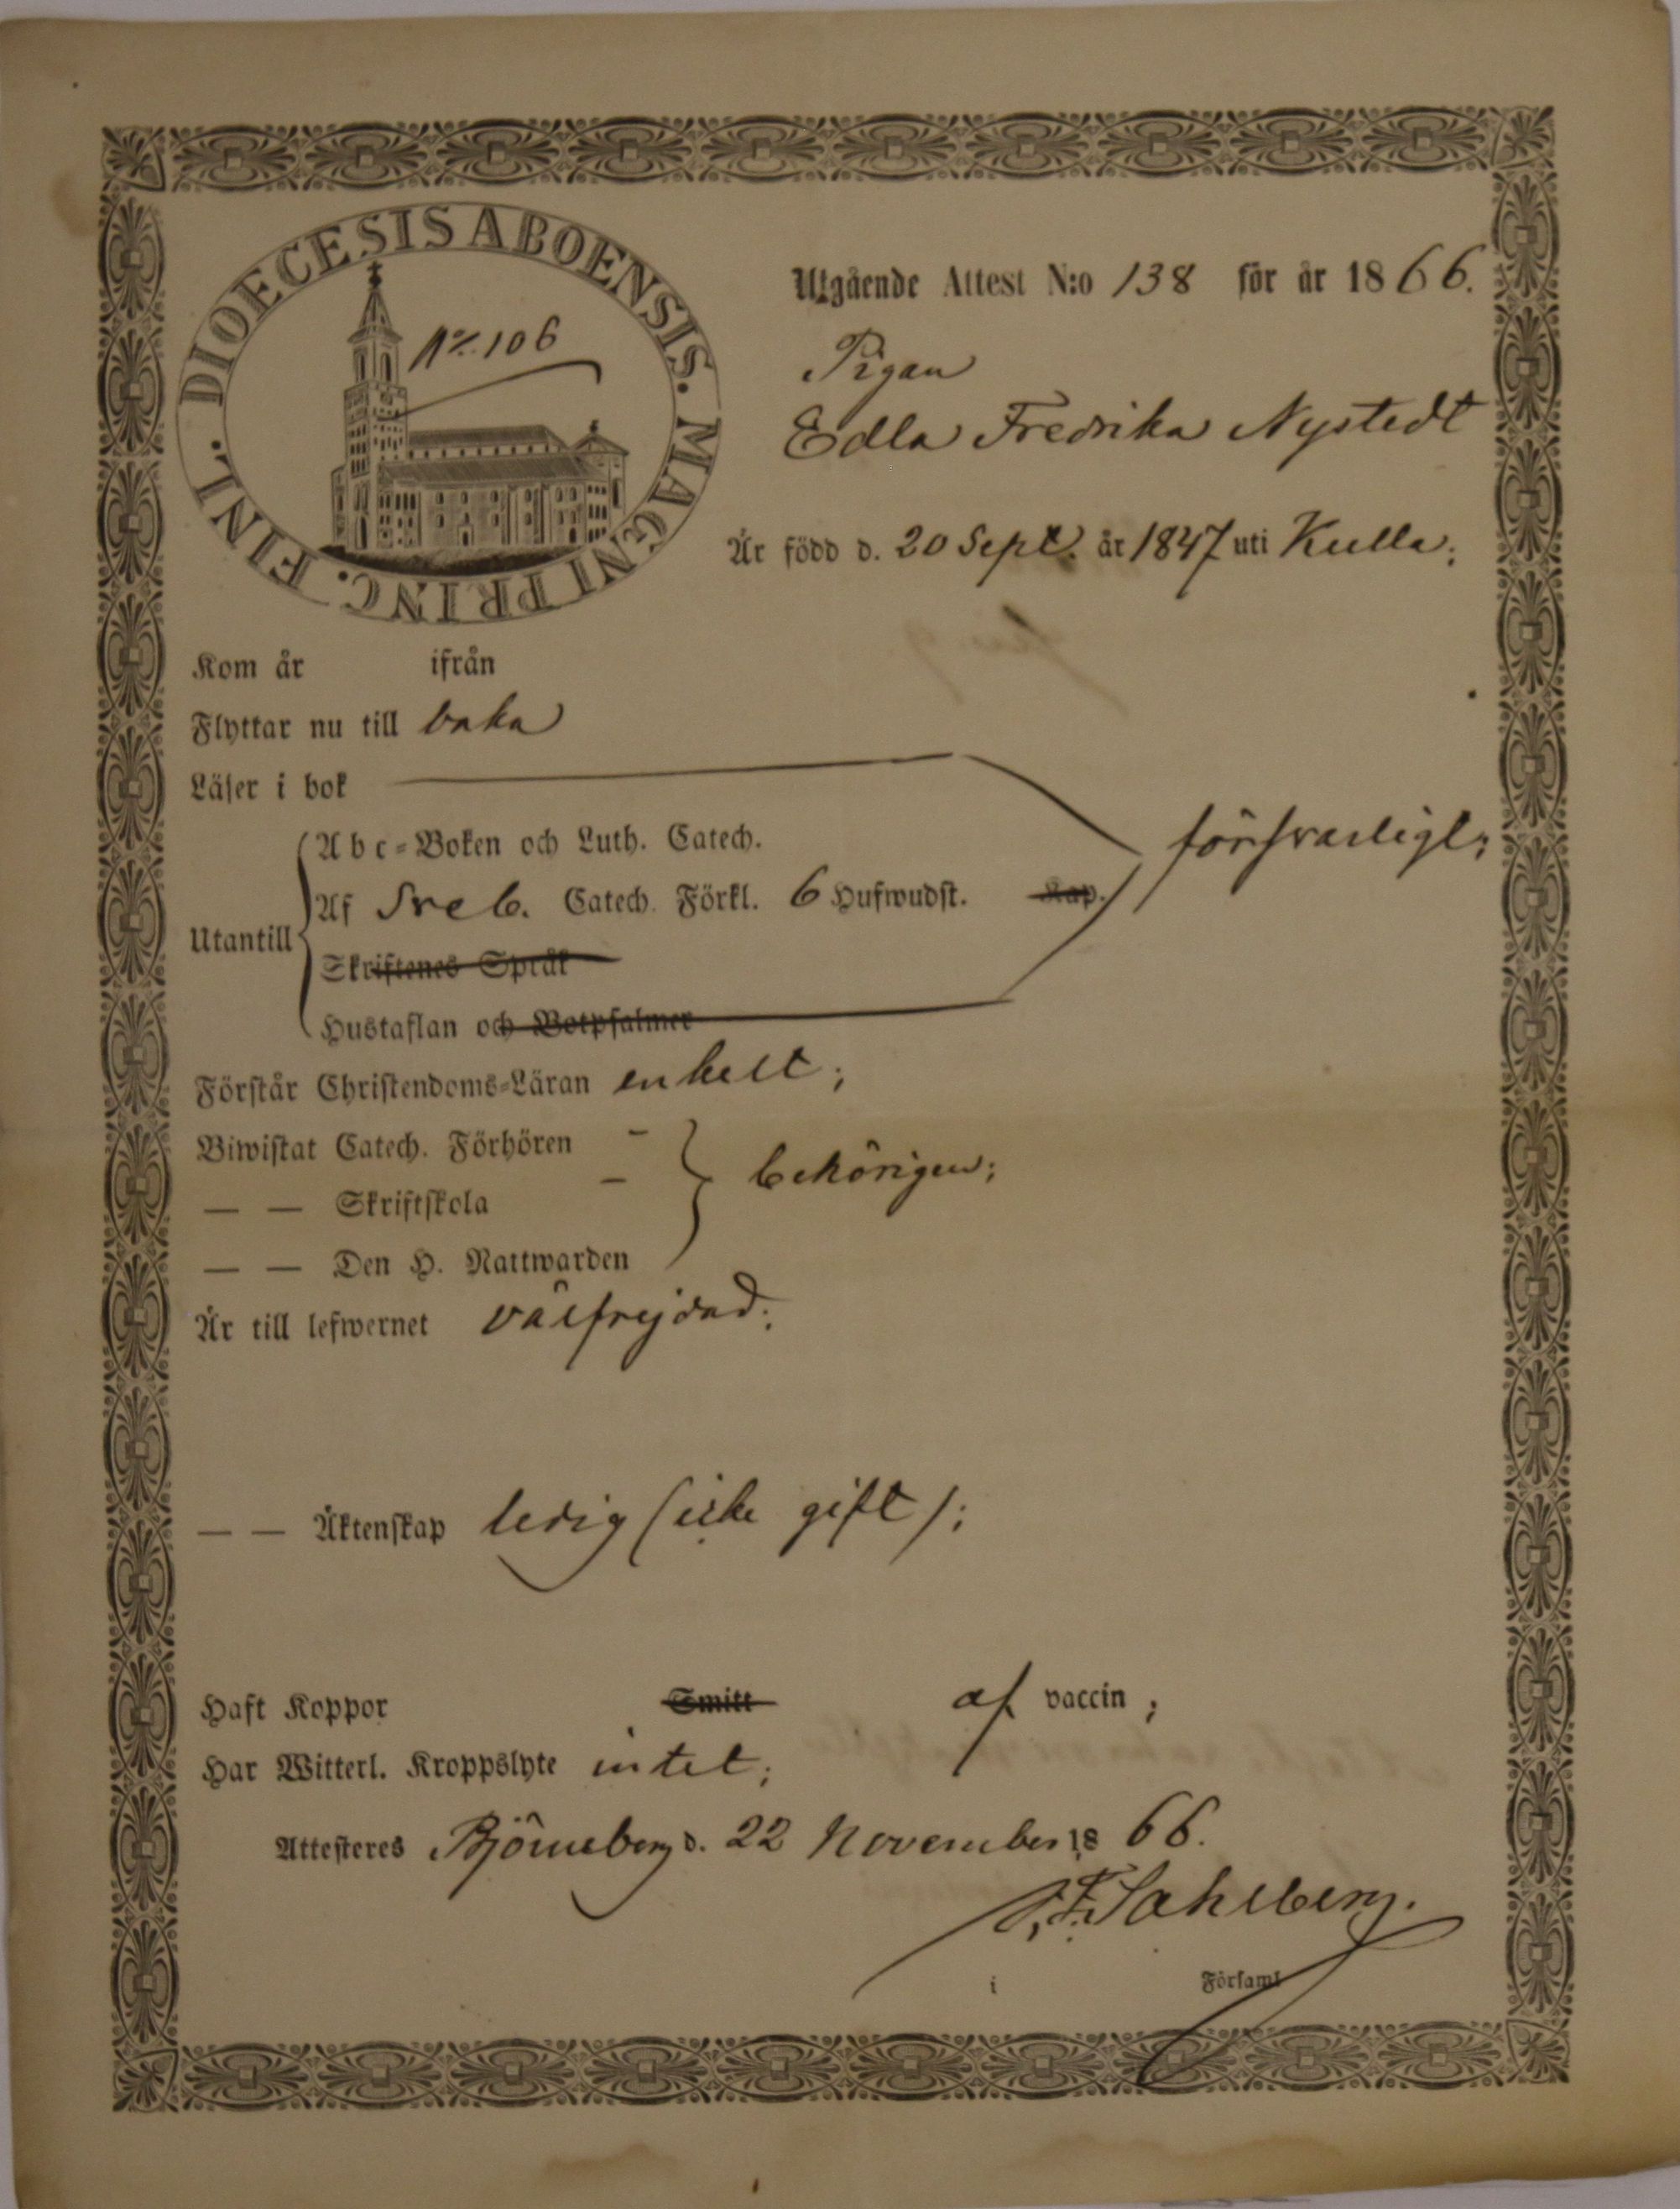 DIOECESIS ABOENSIS. MAGNI PRINC. FINL.
N:o 106
Utgående Attest N:o 138 för år 1866.
Pigan
Edla Fredrika Nystedt
Är född d. 20 Sept. år 1847 uti Kulla;
Kom år ifrån
Flyttar nu till baka
Läser i bok
försvarligt;
Abc-Boken och Luth. Catech.
Utantill
Af Sveb. Catech. Förkl. 6 Hufwudst. Kap.
Skriftenes Språk
Hustaflan och Botpsalmer
Förstår Christendoms-Läran enkelt;
Biwistat Catech. Förhören -
— — Skriftskola -
behörigen;
— — Den H. Nattwarden
Är till lefwernet välfrejdad;
— — Äktenskap ledig (icke gift);
Haft Koppor Smitt af vaccin;
Har Witterl. Kroppslyte intet;
Attesteres Björneborg d. 22 November 1866.
F. Sahlberg.
i Församl